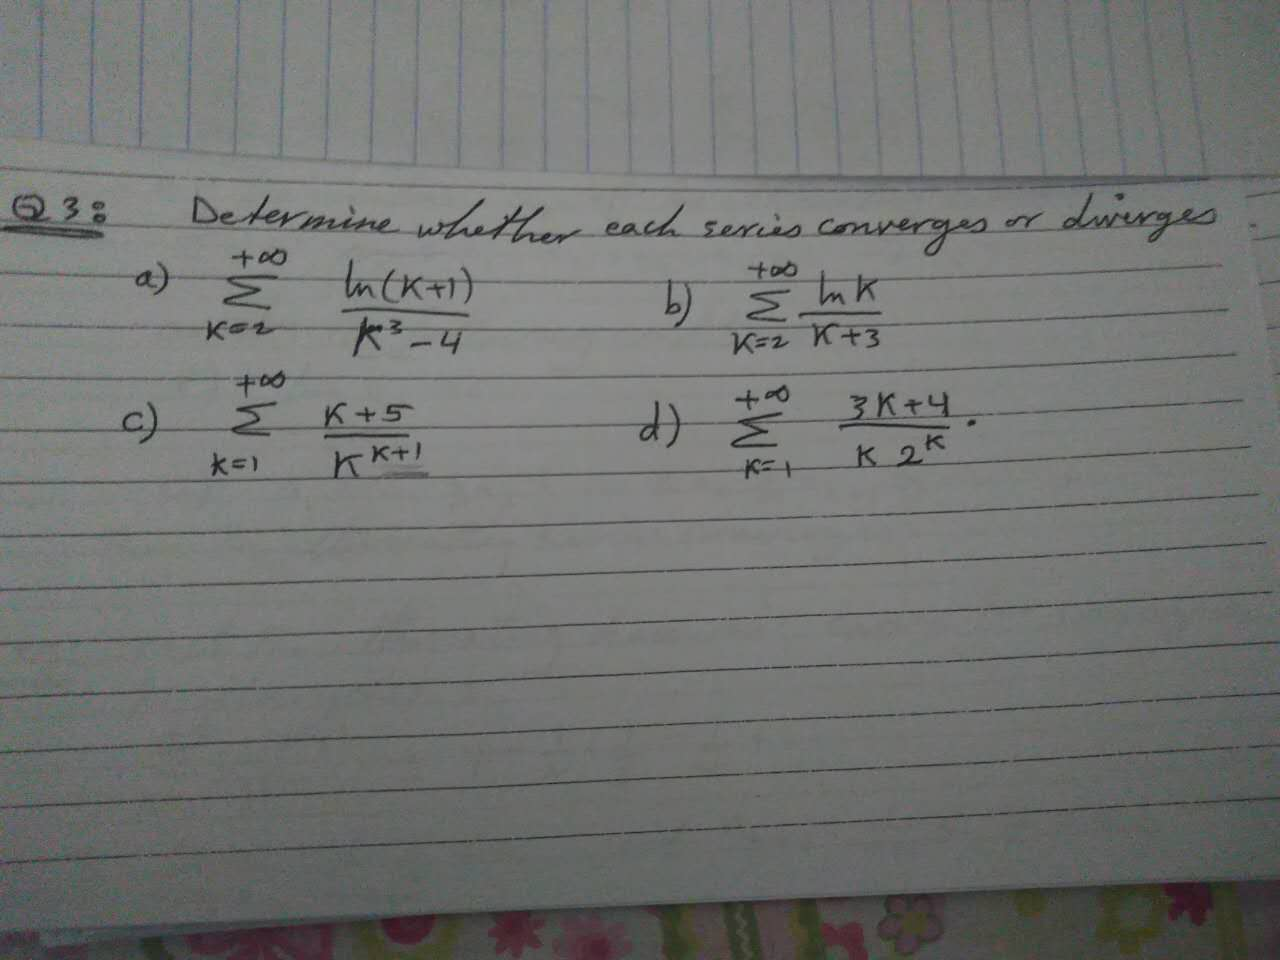 Q3: Determine whether each series converges or diverges
a) $\sum_{K=2}^{+\infty} \frac{\ln(K+1)}{K^3-4}$ b) $\sum_{K=2}^{+\infty} \frac{\ln K}{K+3}$
c) $\sum_{K=1}^{+\infty} \frac{K+5}{K^{K+1}}$ d) $\sum_{K=1}^{+\infty} \frac{3K+4}{K 2^K}$.